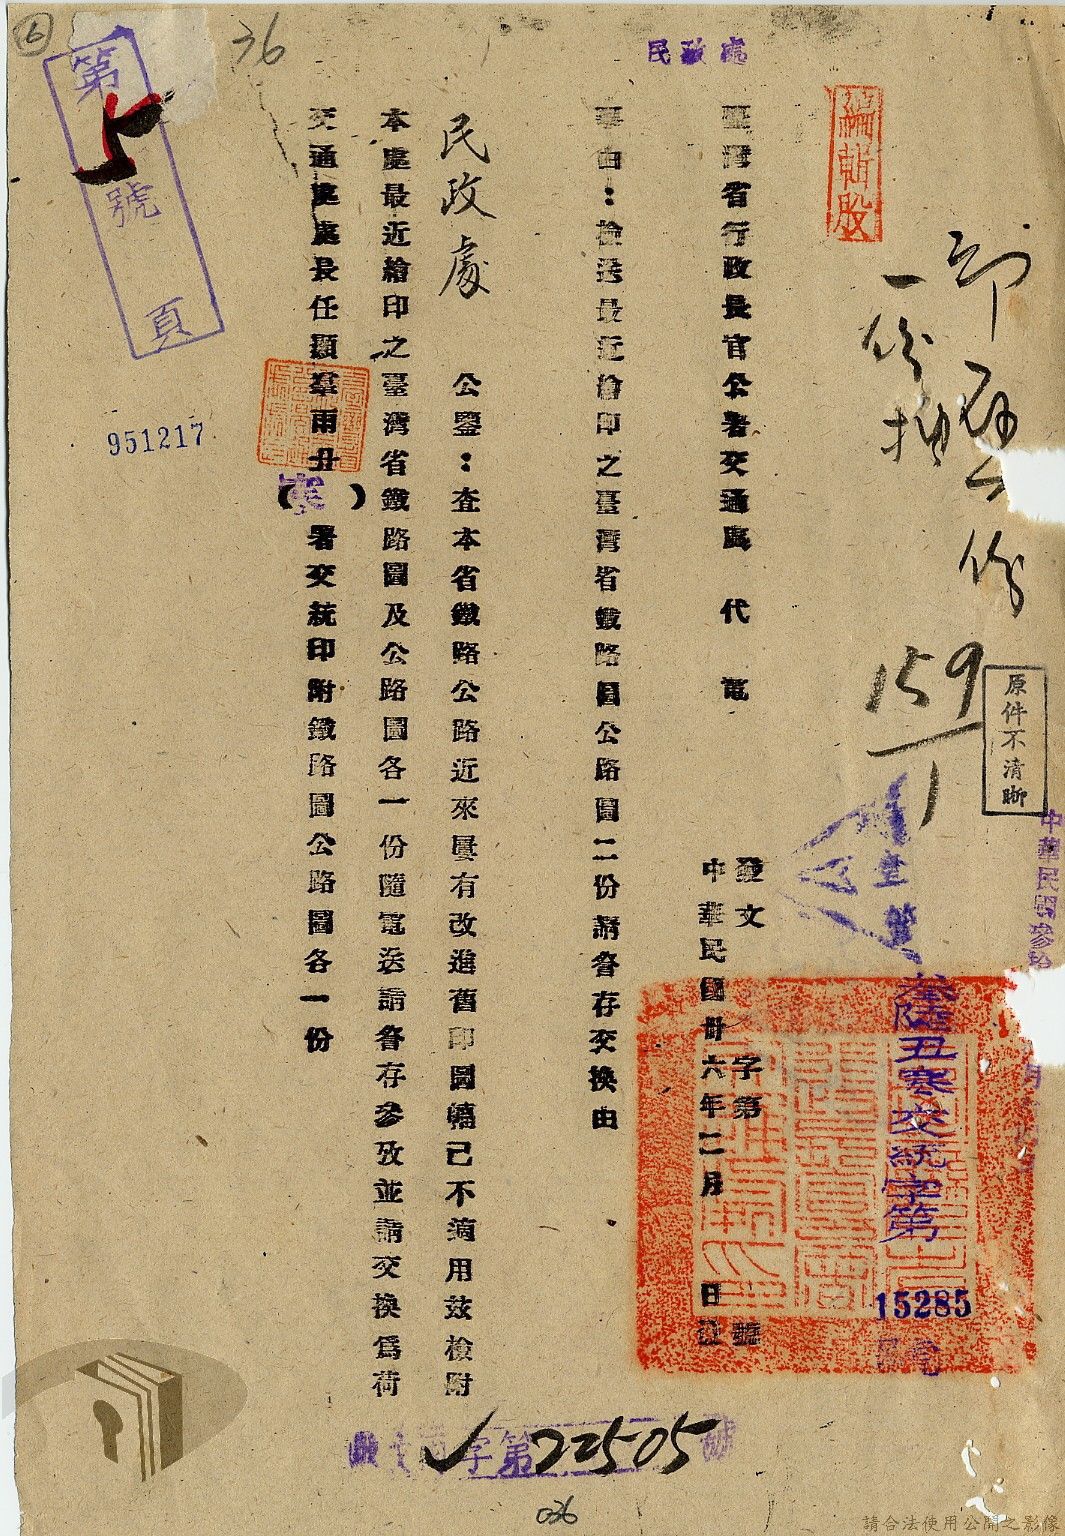 民政處
編輯股
一份抽
臺灣省行政長官公署交通處　代　電
發文　　字第　　號
中華民國卅六年二月　　日發
事由：檢送最近繪印之臺灣省鐵路圖公路圖二份請詧存交換由
民政處　公鑒：查本省鐵路公路近來屢有改進舊印圖幅已不適用茲檢附
本處最近繪印之臺灣省鐵路圖及公路圖各一份隨電送請詧存參攷並請交換爲荷
交通處處長任顯羣雨丑（寒）署交統印附鐵路圖公路圖各一份
159
1
原件不清晰
中華民國參拾
參陸丑寒交統字第
15285
號
字第22505號
第
號
頁
951217
36
6
036
請合法使用公開之影像